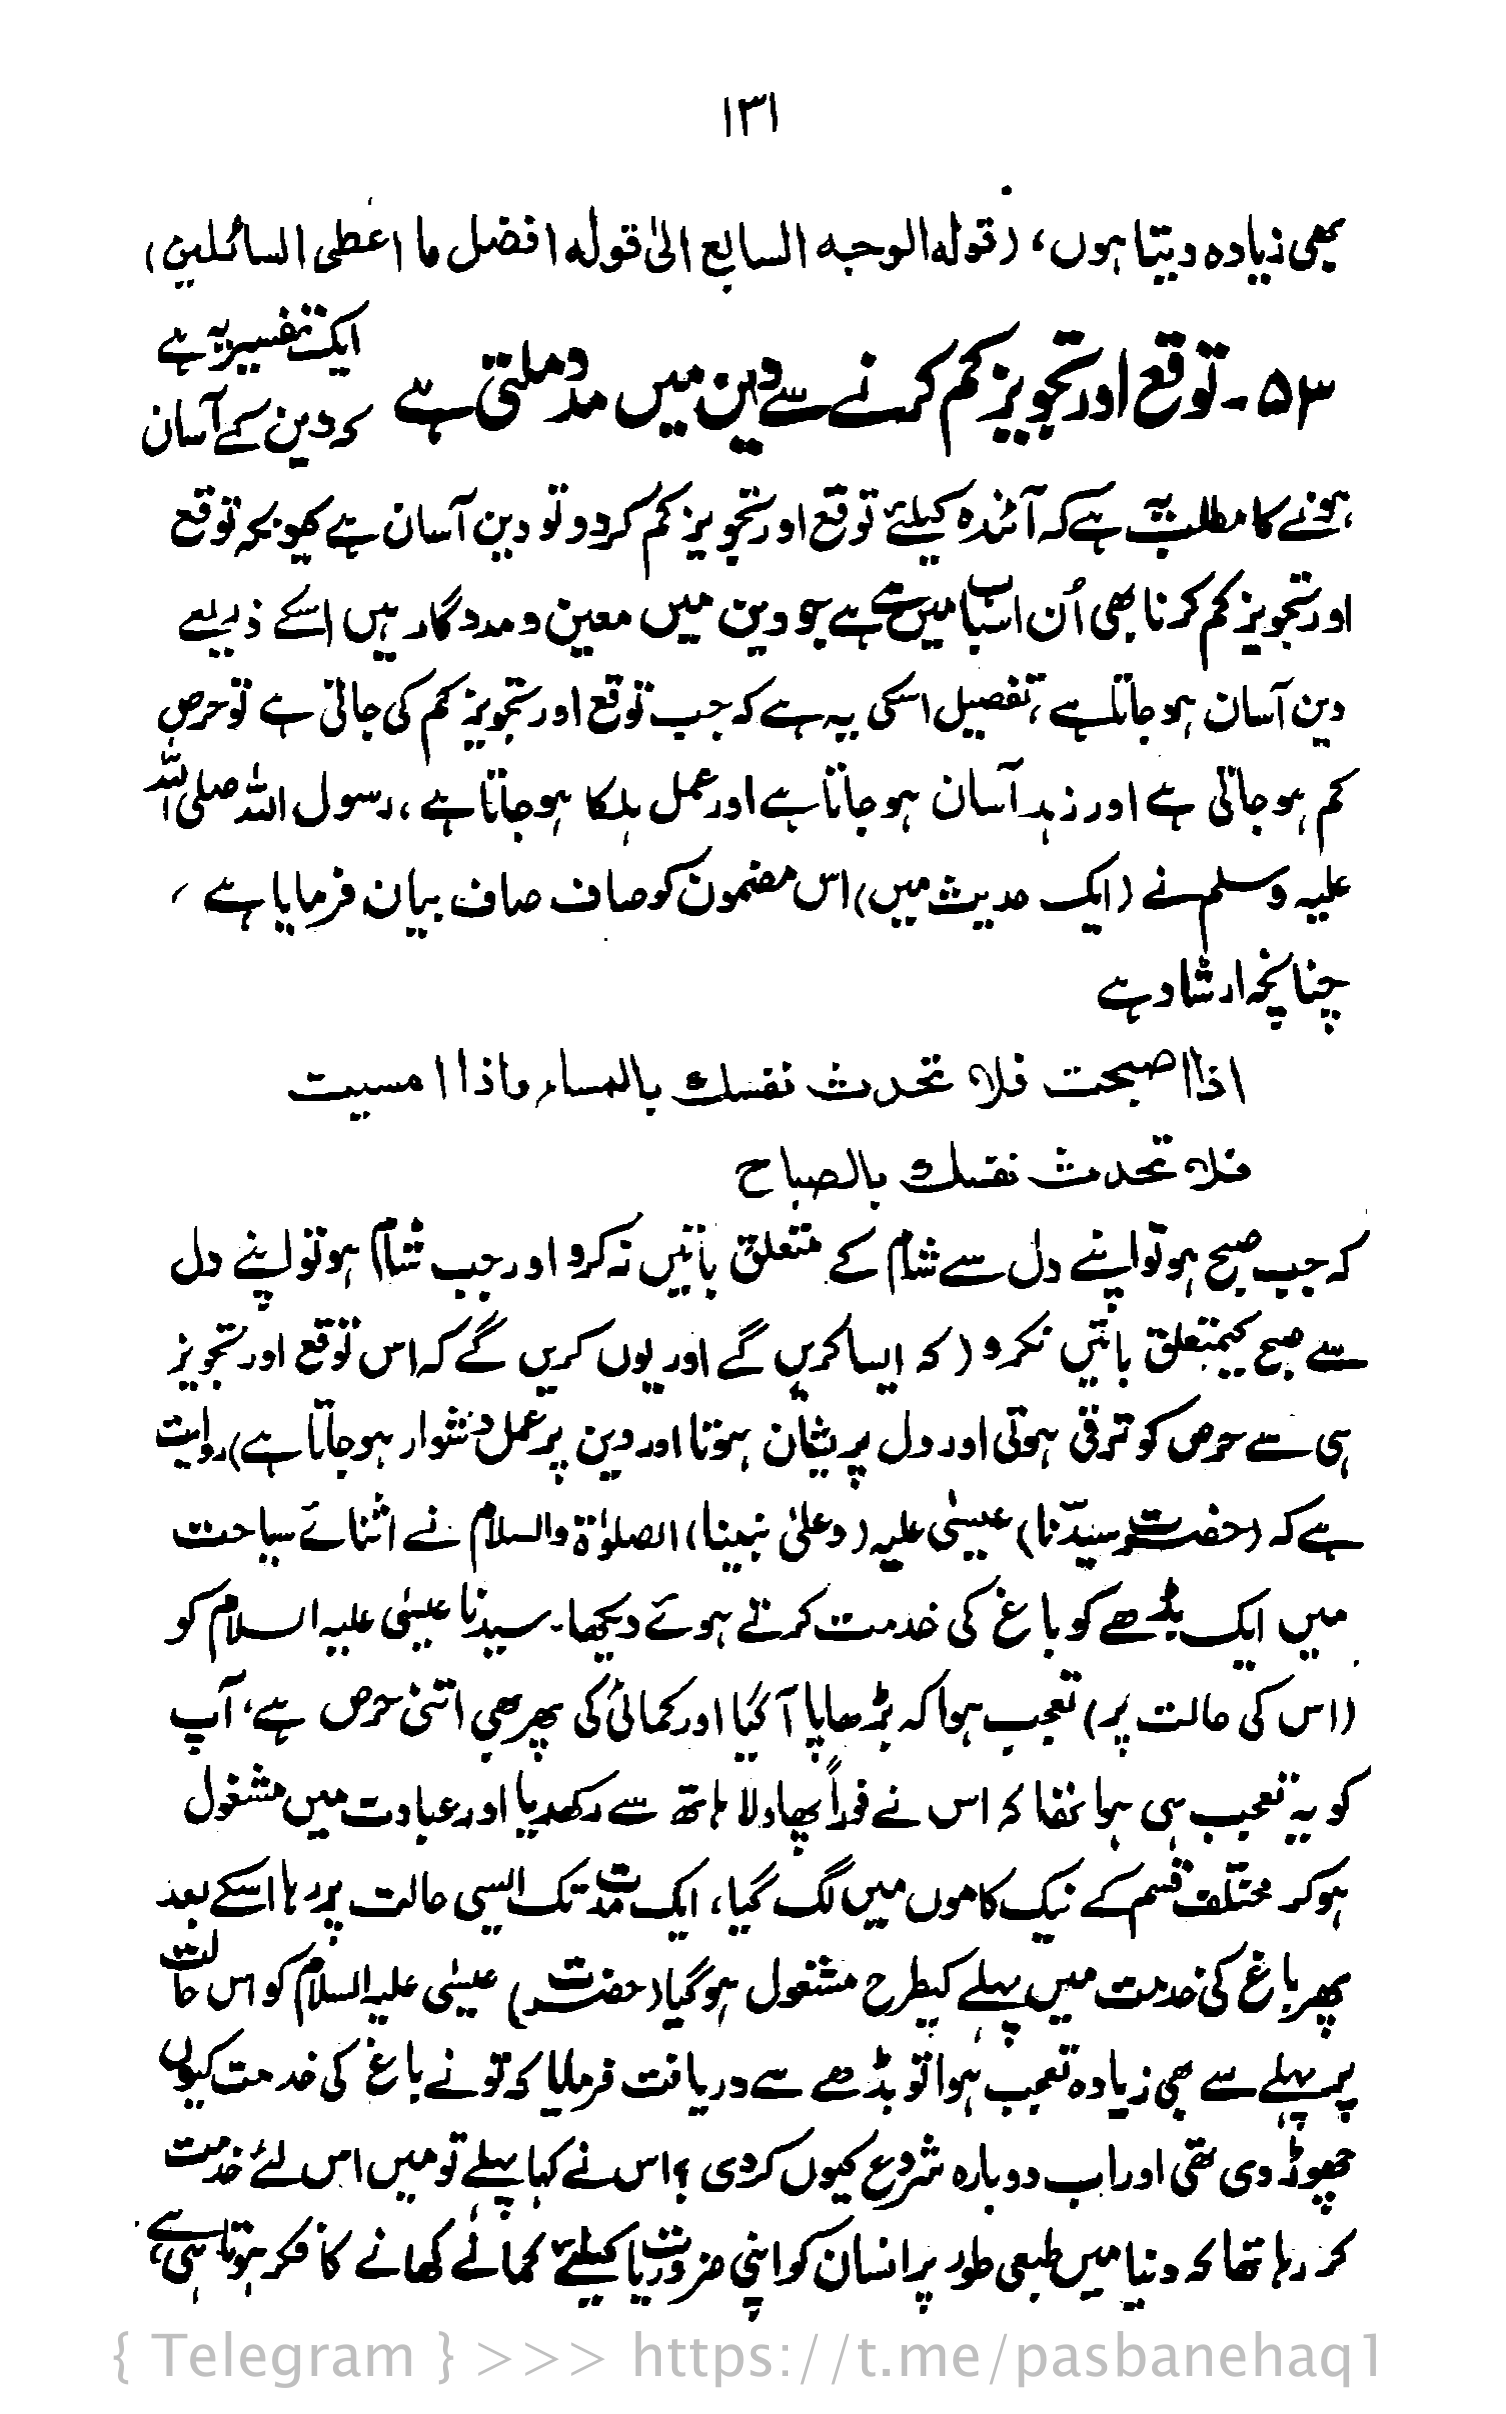 ۱۳۱
بھی زیادہ دیتا ہوں، (قولہ الوجہ السابع الیٰ قولہ افضل ما اعطی السائلین)
۵۳۔ توقع اور تجویز کم کرنے سے دین میں مدد ملتی ہے
ایک تفسیر یہ ہے
کہ دین کے آسان
ہونے کا مطلب یہ ہے کہ آئندہ کیلئے توقع اور تجویز کم کردو تو دین آسان ہے کیونکہ توقع
اور تجویز کم کرنا بھی اُن اسباب میں سے ہے جو دین میں معین و مددگار ہیں اسکے ذریعے
دین آسان ہو جاتا ہے، تفصیل اسکی یہ ہے کہ جب توقع اور تجویز کم کی جاتی ہے تو حرص
کم ہو جاتی ہے اور زہد آسان ہو جاتا ہے اور عمل ہلکا ہو جاتا ہے، رسول اللہ صلی اللہ
علیہ وسلم نے (ایک حدیث میں) اس مضمون کو صاف صاف بیان فرمایا ہے،
چنانچہ ارشاد ہے
اذا اصبحت فلا تحدث نفسك بالمساء واذا امسیت
فلا تحدث نفسك بالصباح
کہ جب صبح ہو تو اپنے دل سے شام کے متعلق باتیں نہ کرو اور جب شام ہو تو اپنے دل
سے صبح کیمتعلق باتیں نکرو (کہ ایسا کریں گے اور یوں کریں گے کہ اس توقع اور تجویز
ہی سے حرص کو ترقی ہوتی اور دل پریشان ہوتا اور دین پر عمل دشوار ہو جاتا ہے) روایت
ہے کہ (حضرت سیدنا) عیسیٰ علیہ (وعلیٰ نبینا) الصلوٰۃ والسلام نے اثنائے سیاحت
میں ایک بڈھے کو باغ کی خدمت کرتے ہوئے دیکھا۔ سیدنا عیسیٰ علیہ السلام کو
(اس کی حالت پر) تعجب ہوا کہ بڑھاپا آ گیا اور کمائی کی پھر بھی اتنی حرص ہے، آپ
کو یہ تعجب ہی ہوا تھا کہ اس نے فوراً پھاولا ہاتھ سے رکھدیا اور عبادت میں مشغول
ہو کر مختلف قسم کے نیک کاموں میں لگ گیا، ایک مدت تک السی حالت پر رہا اسکے بعد
پھر باغ کی خدمت میں پہلے کیطرح مشغول ہو گیا (حضرت) عیسٰی علیہ السلام کو اس حالت
پر پہلے سے بھی زیادہ تعجب ہوا تو بڈھے سے دریافت فرمایا کہ تو نے باغ کی خدمت کیوں
چھوڑ دی تھی اور اب دوبارہ شروع کیوں کردی ؟ اس نے کہا پہلے تو میں اس لئے خدمت
کر رہا تھا کہ دنیا میں طبعی طور پر انسان کو اپنی ضروریات کیلئے کمانے کھانے کا فکر ہوتا ہی ہے،
{ Telegram } >>> https://t.me/pasbanehaq1